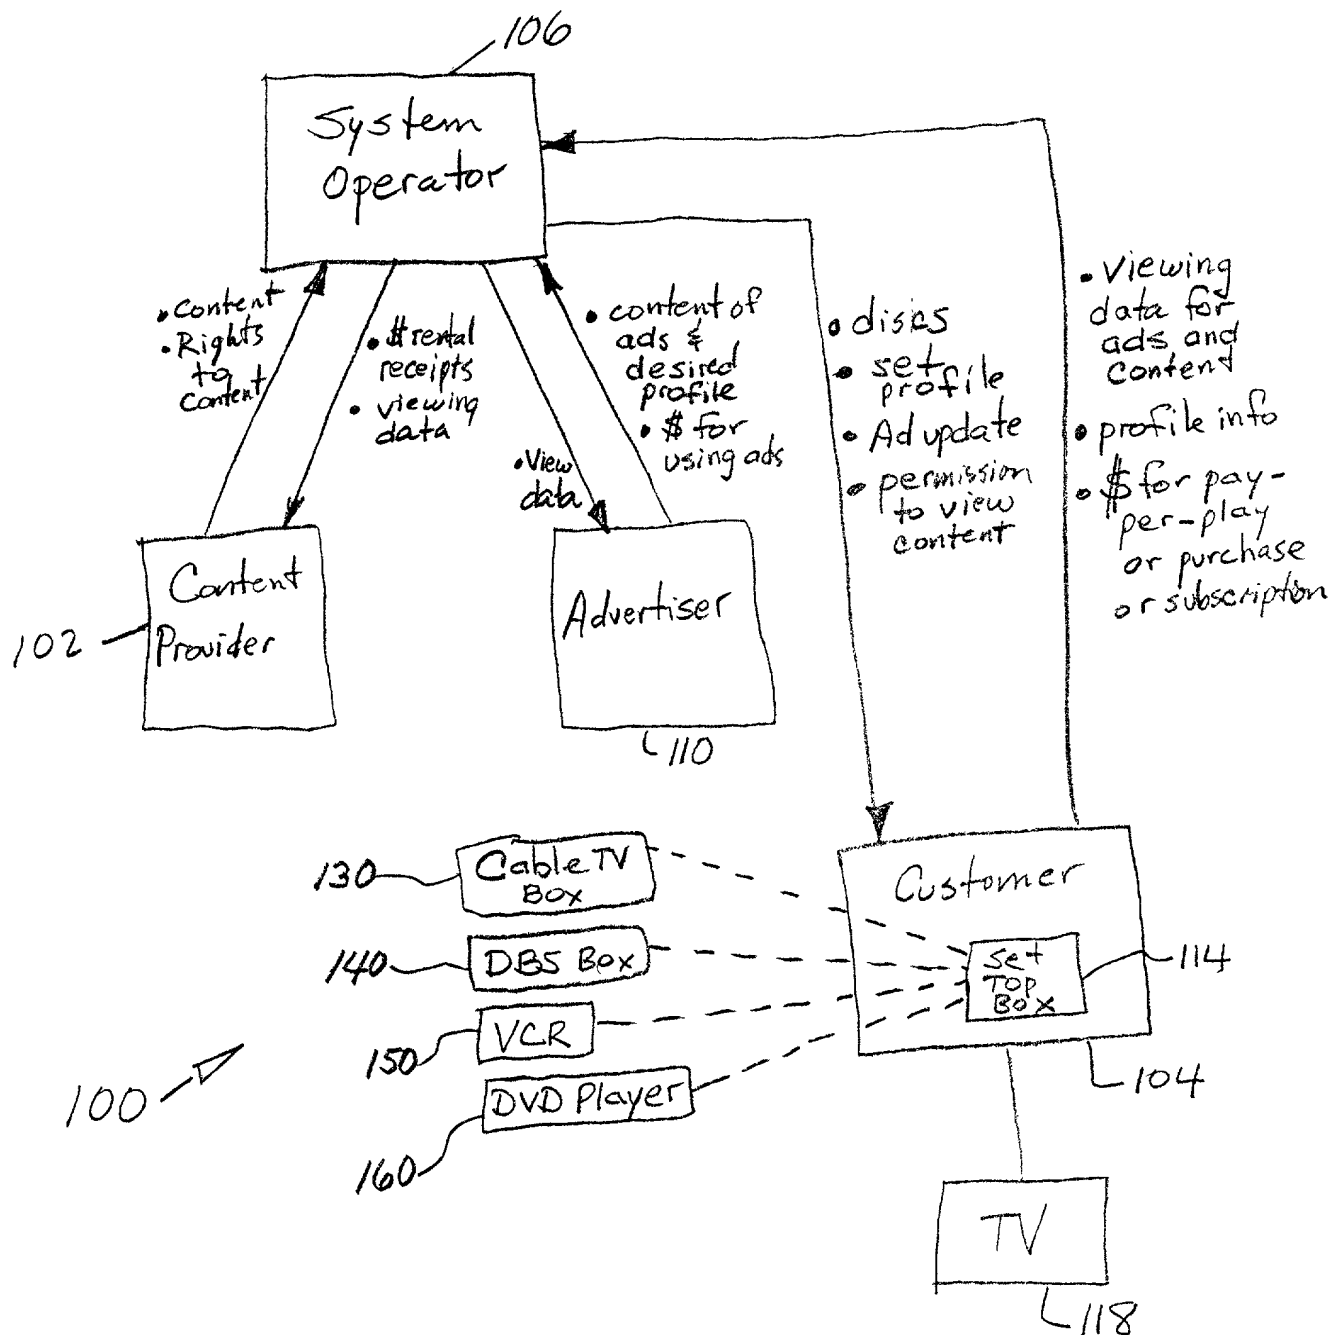 106
System
Operator
• Content
• Rights
to
Content
• $ rental
receipts
• viewing
data
• View
data
• content of
ads &
desired
profile
• $ for
using ads
• discs
• set
profile
• Ad update
• permission
to view
content
• viewing
data for
ads and
content
• profile info
• $ for pay-
per-play
or purchase
or subscription
102
Content
Provider
Advertiser
110
130
Cable TV
Box
140
DBS Box
150
VCR
160
DVD Player
Customer
Set
TOP
BOX
114
104
100
TV
118